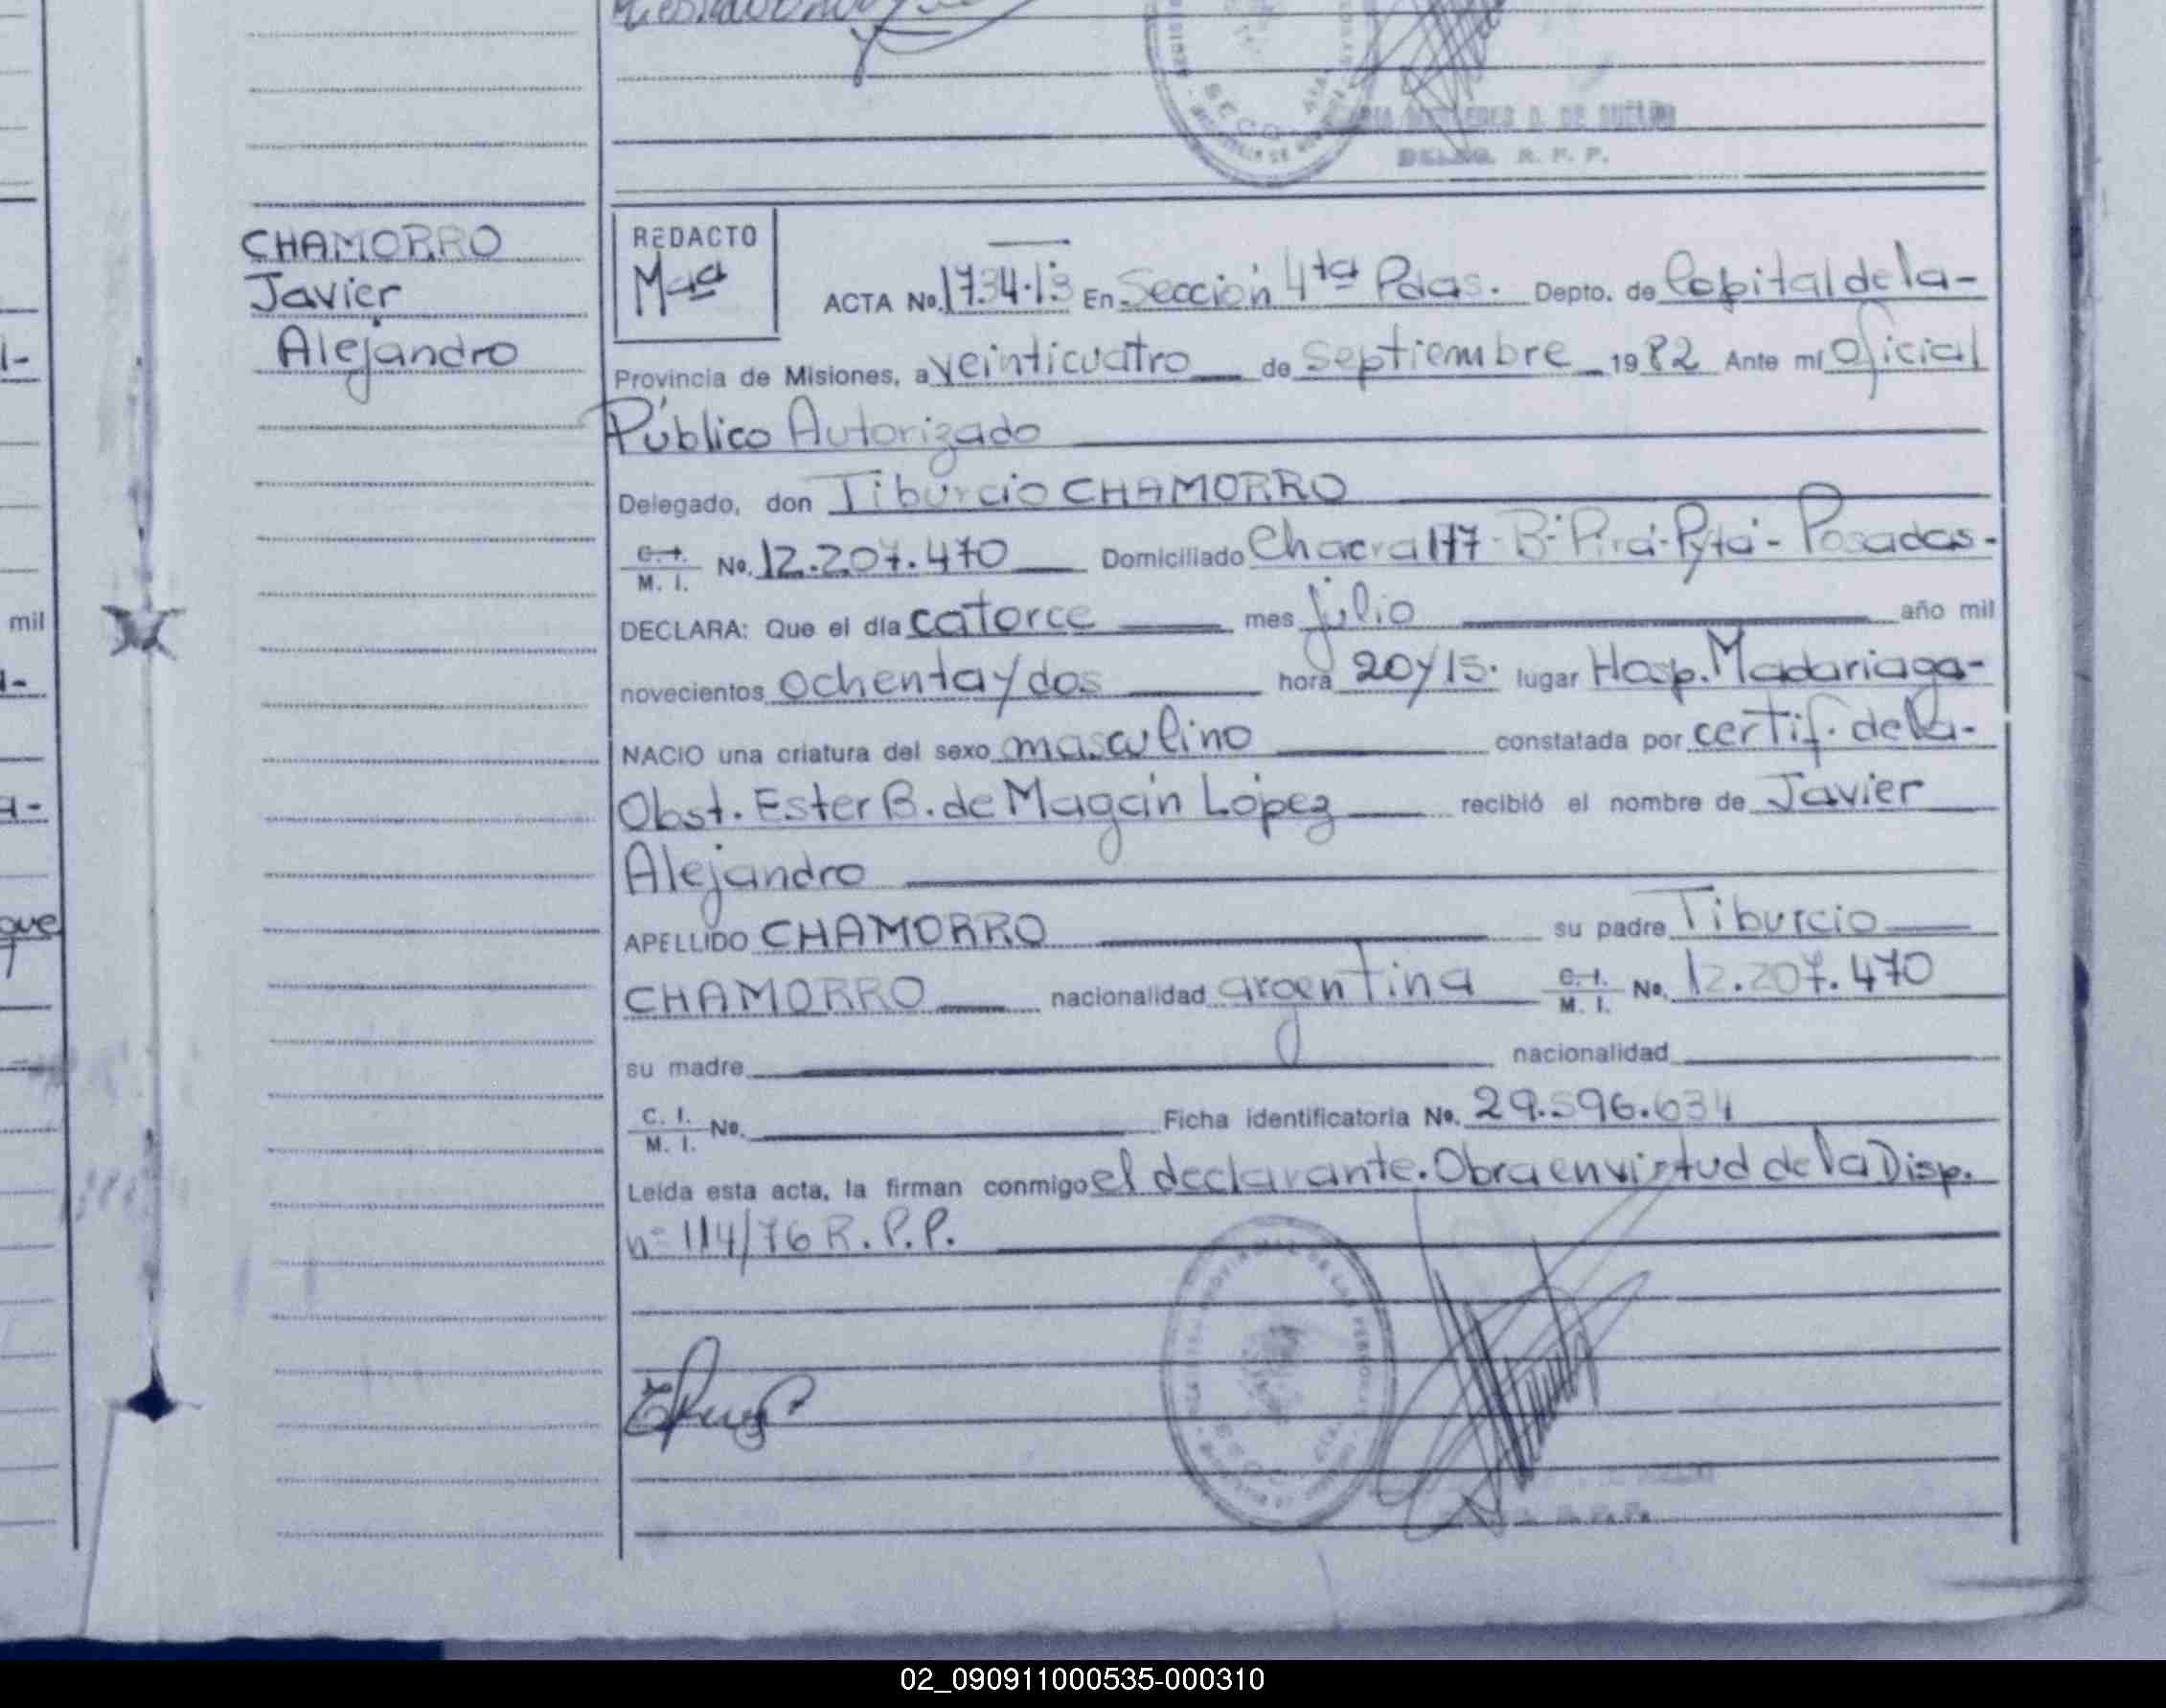 CHAMORRO
Javier
Alejandro
DELEG. R. P. P.
REDACTO
ACTA No. 1734·13 En Sección 4ta Pdas. Depto. de Capital de la-
Provincia de Misiones, a veinticuatro de Septiembre 1982 Ante mí Oficial
Público Autorizado
Delegado, don Tiburcio CHAMORRO
C. I. / M. I. No. 12.207.470 Domiciliado Chacra 177-B- Pirá-Pytá- Posadas-
DECLARA: Que el día catorce mes julio año mil
novecientos ochenta y dos hora 20 y 15. lugar Hosp. Madariaga-
NACIO una criatura del sexo masculino constatada por certif. de la-
Obst. Ester B. de Magán López recibió el nombre de Javier
Alejandro
APELLIDO CHAMORRO su padre Tiburcio
CHAMORRO nacionalidad argentina C. I. / M. I. No. 12.207.470
su madre nacionalidad
C. I. / M. I. No. Ficha identificatoria No. 29.596.634
Leída esta acta, la firman conmigo el declarante. Obra en virtud de la Disp.
nº 114/76 R. P. P.
mil
que
02_090911000535-000310